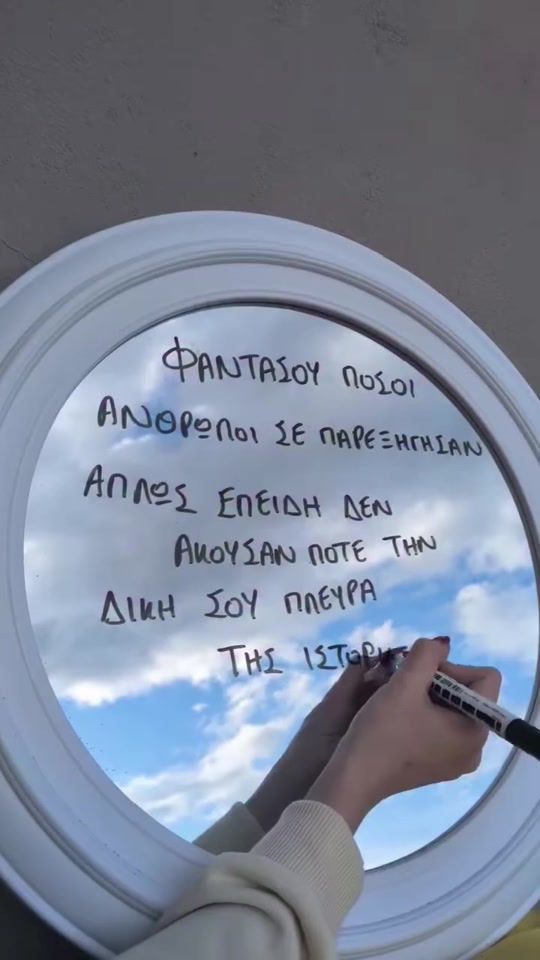 ΦΑΝΤΑΣΟΥ ΠΟΣΟΙ
ΑΝΘΡΩΠΟΙ ΣΕ ΠΑΡΕΞΗΓΗΣΑΝ
ΑΠΛΩΣ ΕΠΕΙΔΗ ΔΕΝ
ΑΚΟΥΣΑΝ ΠΟΤΕ ΤΗΝ
ΔΙΚΗ ΣΟΥ ΠΛΕΥΡΑ
ΤΗΣ